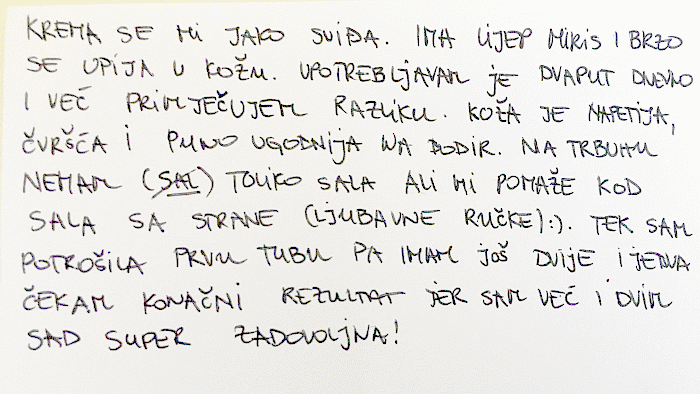 KREMA SE MI JAKO SVIĐA. IMA LIJEP MIRIS I BRZO
SE UPIJA U KOŽU. UPOTREBLJAVAM JE DVAPUT DNEVNO
I VEĆ PRIMJEČUJEM RAZLIKU. KOŽA JE NAPETIJA,
ČVRŠĆA I PUNO UGODNIJA NA DODIR. NA TRBUHU
NEMAM (SAL) TOLIKO SALA ALI MI POMAŽE KOD
SALA SA STRANE (LJUBAVNE RUČKE):). TEK SAM
POTROŠILA PRVU TUBU PA IMAM JOŠ DVIJE I JEDVA
ČEKAM KONAČNI REZULTAT JER SAM VEĆ I OVIM
SAD SUPER ZADOVOLJNA!